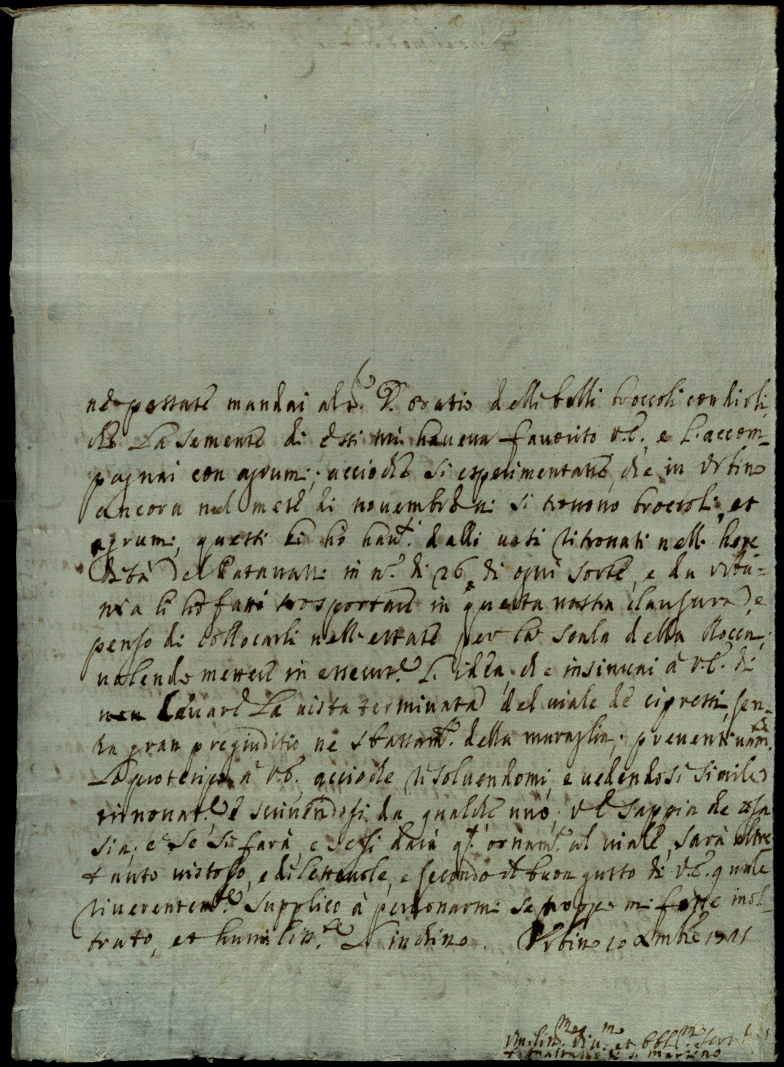 ne passate mandai al S. D. Oratio delli belli broccoli condirli,
che La semente di essi mi haveva favorito V.E. e L'accom-
pagnai con agrumi; acciochè si esperimentasse, che in Urbino
ancora nel mese di novembre vi si trovono broccoli, et
agrumi, questi li hò haut.i dalli vasi ritrovati nell' here
dità del in n.o di 26 di ogni sorte, e da Urba-
nia li hò fatti trosportare in questa nostra clausura, e
penso di collocarli nell'estate per la scala della Rocca;
volendo mettere in essecut.e L'idea, che insinuai à V.E. di
non Levare La vista terminata del viale de cipressi, sen-
za gran pregiuditio, nè sbassam.to della muraglia;
Lo à V.E. acciochè risolvendomi, e vedendosi simile
rinovat.e e scrivendosi da qualche uno; V.E. sappia che cosa
sia; e se si farà, e se si darà q.to ornam.to al viale, sarà oltre
tanto vistoso, e dilettevole, e secondo il buon gusto di V.E. quale
riverentem.te supplico à perdonarmi se troppo mi fosse inol-
trato, et humilm.te L'inchino. Urbino 10 Xmbre 1721
Um.lis.mo Div.mo et Obbl.mo Serv.
di S. Martino